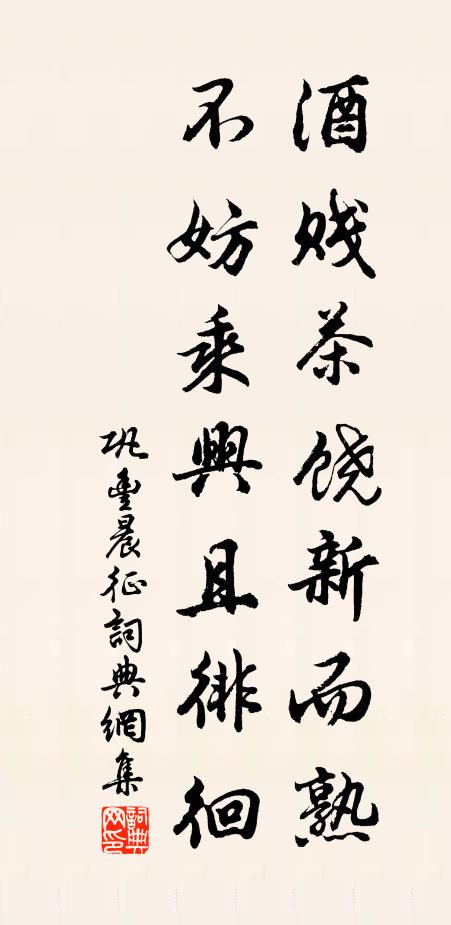 酒贱茶饶新而熟
不妨乘興且徘徊
巩豐晨征詞典網集
詞典网印